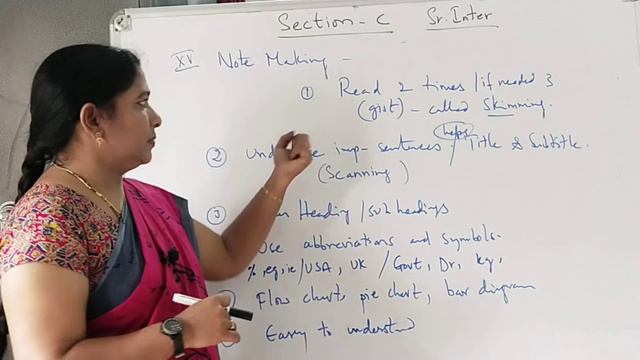 Section - C Sr. Inter
XV Note Making -
① Read 2 times / if needed 3
(gist) - called Skimming.
② imp- sentences / (helps) Title & Subtitle.
(Scanning)
③ Heading / sub headings
Use abbreviations and symbols.
%, eg, ie / USA, UK / Govt, Dr, kg,
Flow chart, pie chart, bar diagram
Easy to understand